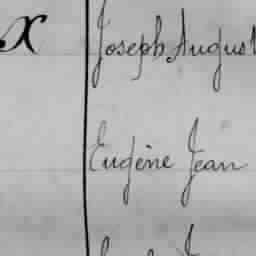 x Joseph August
Eugène Jean